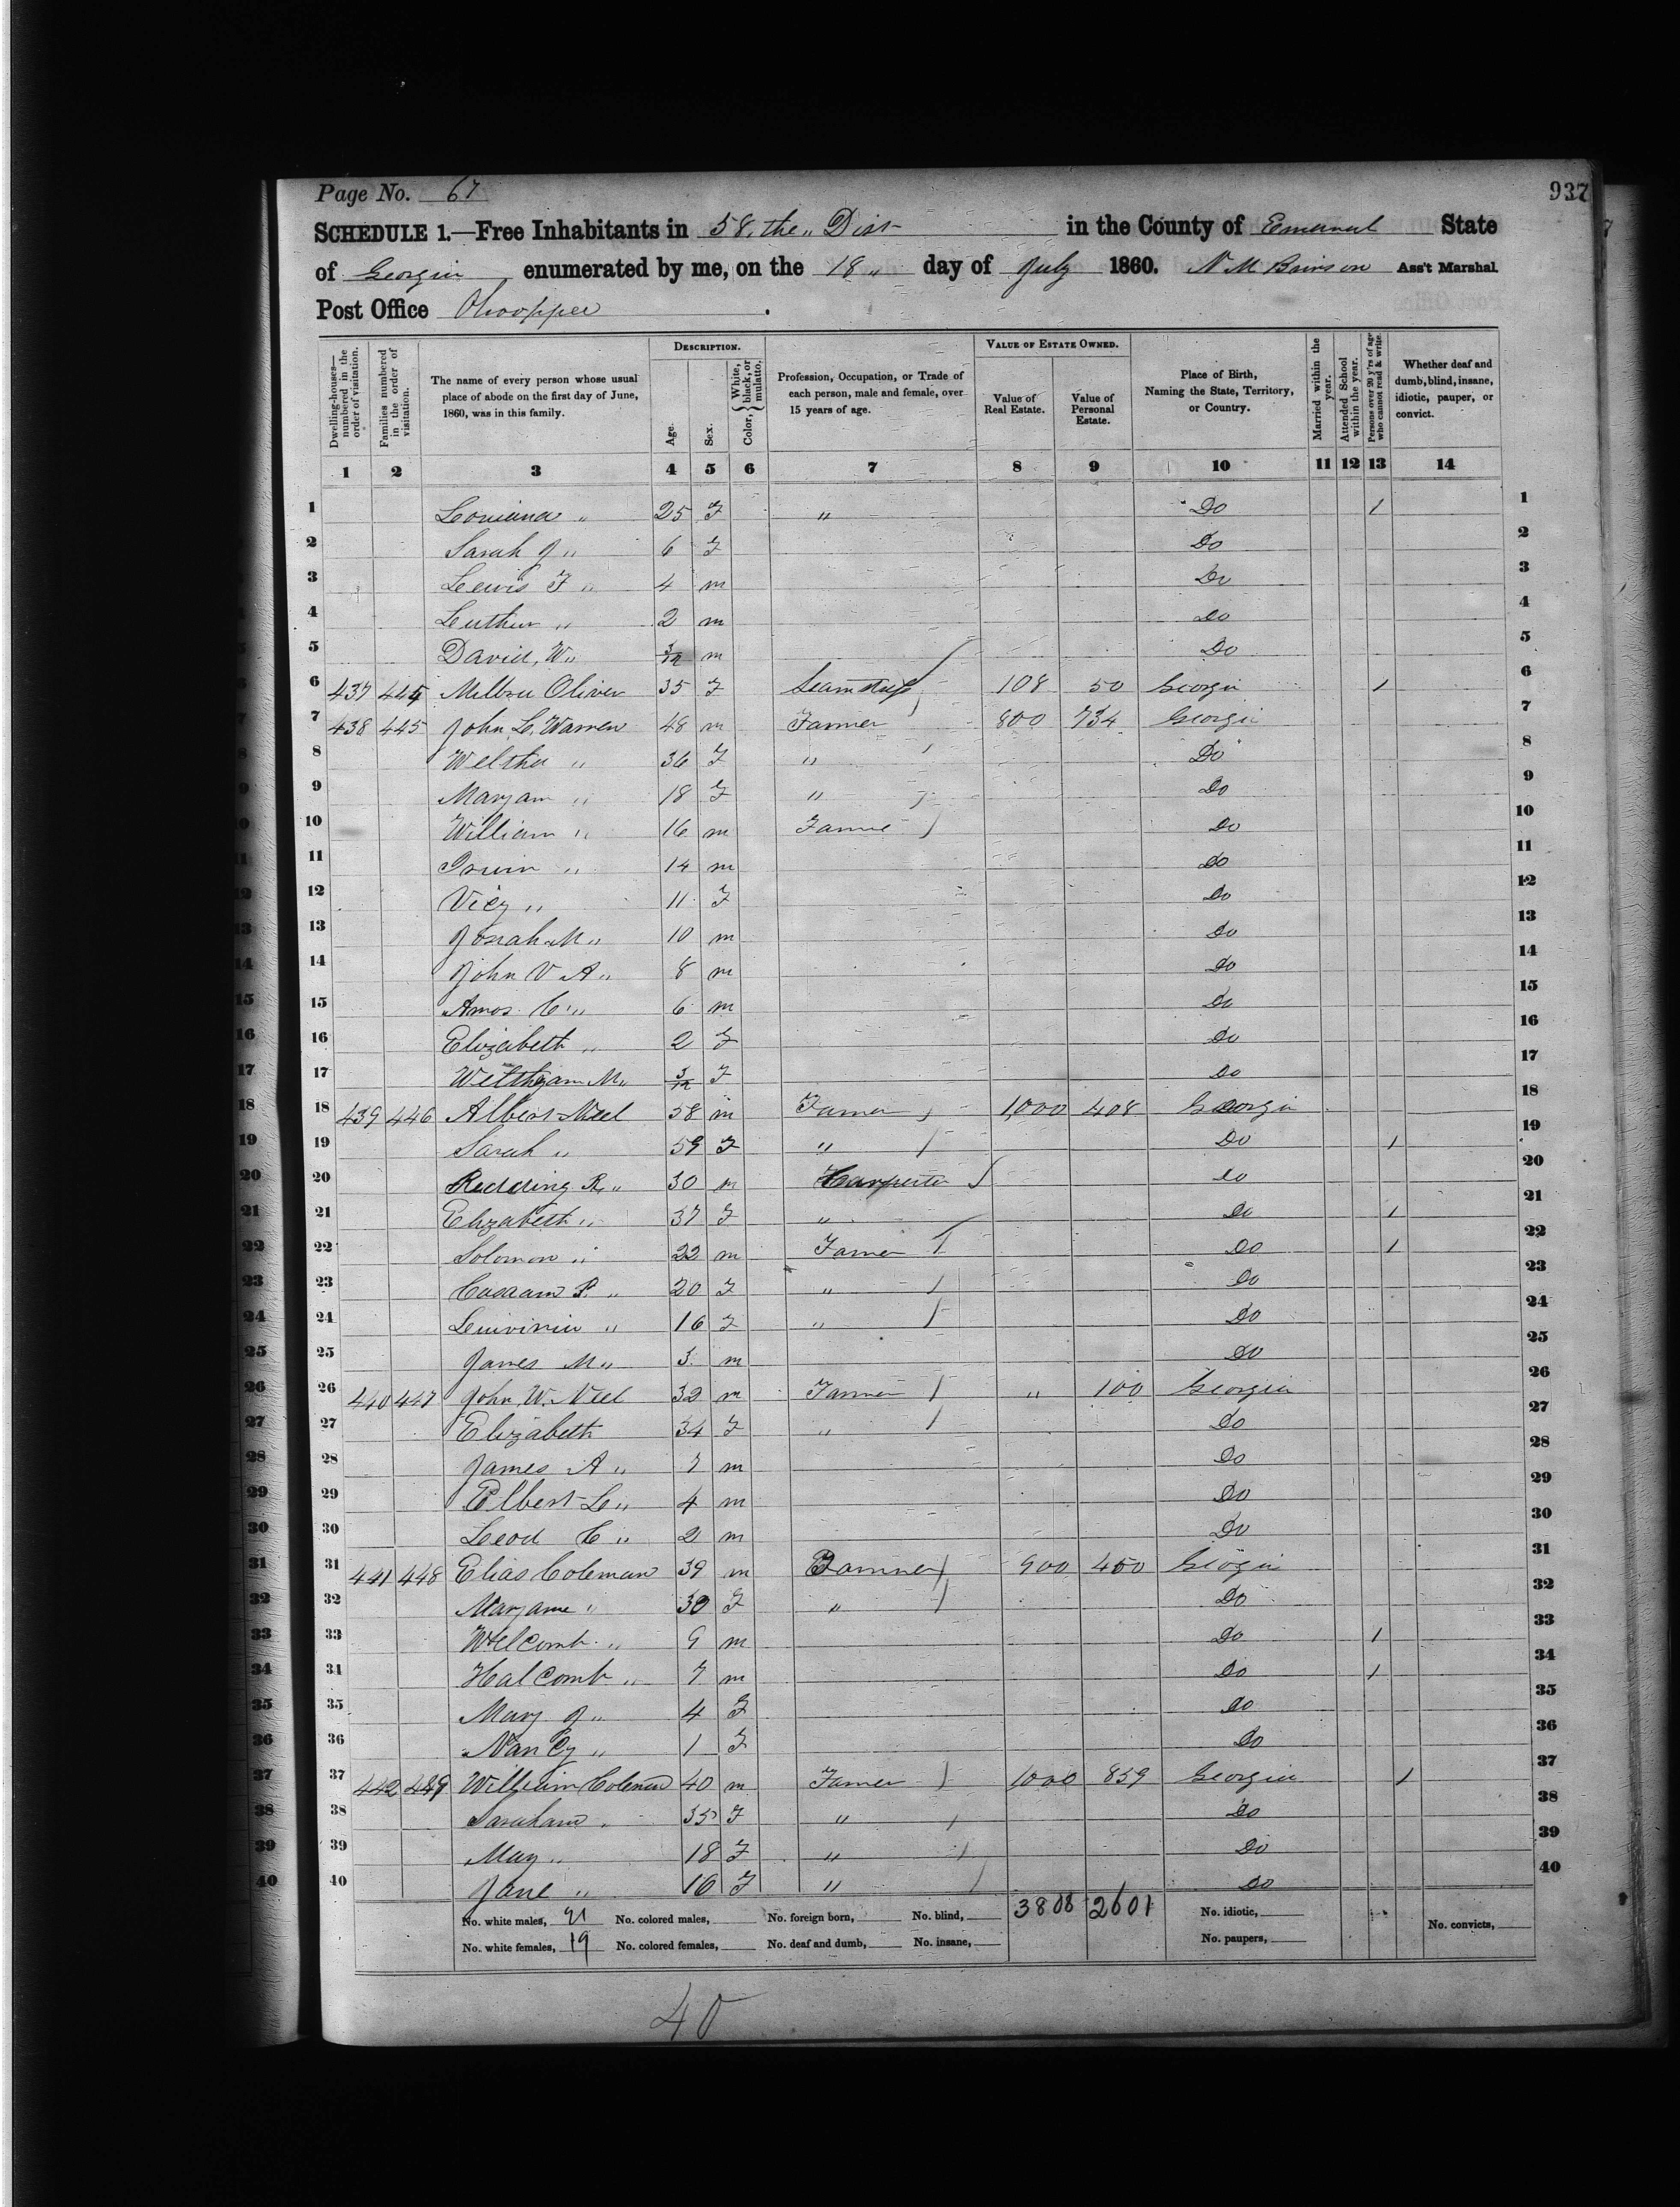 937
Page No. 67
SCHEDULE 1.—Free Inhabitants in 58, the,, Dist in the County of Emanuel State
of Georgia enumerated by me, on the 18,, day of July 1860. N M Ass't Marshal.
Post Office Ohoopee
DESCRIPTION. VALUE OF ESTATE OWNED.
Dwelling-houses— numbered in the order of visitation. Families numbered in the order of visitation. The name of every person whose usual place of abode on the first day of June, 1860, was in this family. Age. Sex. Color, { White, black, or mulatto. Profession, Occupation, or Trade of each person, male and female, over 15 years of age. Value of Real Estate. Value of Personal Estate. Place of Birth, Naming the State, Territory, or Country. Married within the year. Attended School within the year. Persons over 20 y'rs of age who cannot read & write. Whether deaf and dumb, blind, insane, idiotic, pauper, or convict.
1 2 3 4 5 6 7 8 9 10 11 12 13 14
1 Louiana ,, 25 F ,, Do / 1
2 Sarah J ,, 6 F Do 2
3 Lewis F ,, 4 m Do 3
4 Luther ,, 2 m Do 4
5 David, W,, 3/12 m Do 5
6 437 444 Oliver 35 F 108 50 Georgia / 6
7 438 445 John L, Warren 48 m Farmer 800 734 Georgia 7
8 Weltha ,, 36 F ,, Do 8
9 Maryam ,, 18 F ,, Do 9
10 William ,, 16 m Farme Do 10
11 Irwin ,, 14 m Do 11
12 Vicy ,, 11 F Do 12
13 Josiah M,, 10 m Do 13
14 John V A,, 8 m Do 14
15 Amos C,, 6 m Do 15
16 Elizabeth ,, 2 F Do 16
17 M,, 3/12 F Do 17
18 439 446 Albert Neel 58 m Farmer 1,000 408 Georgia 18
19 Sarah ,, 59 F ,, Do / 19
20 Redding R,, 30 m Carpenter Do 20
21 Elizabeth ,, 37 F ,, Do / 21
22 Solomon ,, 22 m Farmer Do / 22
23 ,, 20 F ,, Do 23
24 ,, 16 F ,, Do 24
25 James M,, 3 m Do 25
26 440 447 John W. Neel 32 m Farmer ,, 100 Georgia 26
27 Elizabeth 34 F ,, Do 27
28 James A ,, 7 m Do 28
29 Elbert L,, 4 m Do 29
30 Leod C ,, 2 m Do 30
31 441 448 Elias Coleman 39 m Farmer 900 450 Georgia 31
32 Maryame ,, 30 F ,, Do 32
33 Welcomb ,, 9 m Do / 33
34 Halcomb ,, 7 m Do / 34
35 Mary J ,, 4 F Do 35
36 Nancy ,, 1 F Do 36
37 442 449 William Coleman 40 m Farmer 1000 859 Georgia / 37
38 Sarahann ,, 35 F ,, Do 38
39 May ,, 18 F ,, Do 39
40 Jane ,, 16 F ,, Do 40
No. white males, 21 No. colored males, No. foreign born, No. blind, 3808 2601 No. idiotic,
No. white females, 19 No. colored females, No. deaf and dumb, No. insane, No. paupers, No. convicts,
40